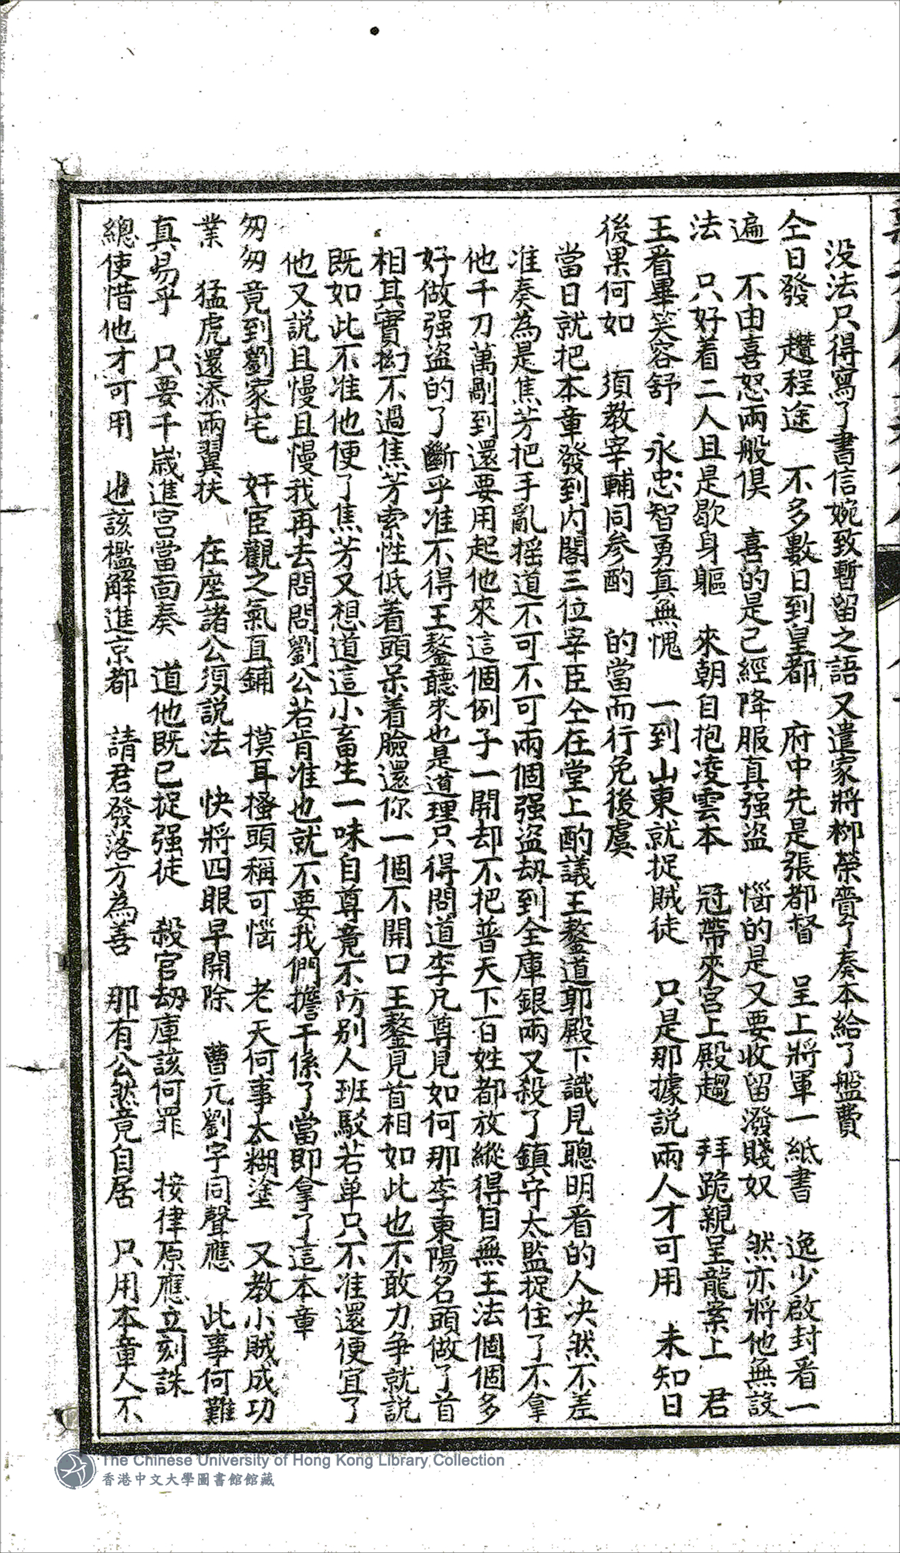 没法只得寫了書信婉致暫留之語又遣家將柳榮賫了奏本給了盤費
仝日發　趲程途　不多數日到皇都　府中先是張都督　呈上將軍一紙書　逸少啟封看一
遍　不由喜怒兩般俱　喜的是已經降服真强盜　惱的是又要收留潑賤奴　然亦將他無設
法　只好着二人且是歇身軀　來朝自抱凌雲本　冠帶來宫上殿趨　拜跪親呈龍案上　君
王看畢笑容舒　永忠智勇真無愧　一到山東就捉賊徒　只是那據説兩人才可用　未知日
後果何如　須教宰輔同参酌　的當而行免後虞
當日就把本章發到内閣三位宰臣仝在堂上酌議王鏊道郭殿下識見聰明看的人决然不差
准奏為是焦芳把手亂摇道不可不可兩個强盜刼到全庫銀兩又殺了鎮守太監捉住了不拿
他千刀萬剮到還要用起他來這個例子一開却不把普天下百姓都放縱得目無王法個個多
好做强盜的了斷乎准不得王鏊聽來也是道理只得問道李凡尊見如何那李東陽名頭做了首
相其實拗不過焦芳索性低着頭呆着臉還你一個不開口王鏊見首相如此也不敢力争就説
既如此不准他便了焦芳又想道這小畜生一味自尊竟不防别人班駁若单只不准還便宜了
他又説且慢且慢我再去問問劉公若肯准也就不要我們擔干係了當即拿了這本章
匆匆竟到劉家宅　奸宦觀之氣直鋪　摸耳搔頭稱可惱　老天何事太糊塗　又教小賊成功
業　猛虎還添兩翼扶　在座諸公須説法　快將四眼早開除　曹元劉宇同聲應　此事何難
真易乎　只要千歲進宫當面奏　道他既已捉强徒　殺官刼庫該何罪　按律原應立刻誅
總使惜他才可用　也該檻解進京都　請君發落方為善　那有公然竟自居　只用本章人不
The Chinese University of Hong Kong Library Collection
香港中文大學圖書館館藏